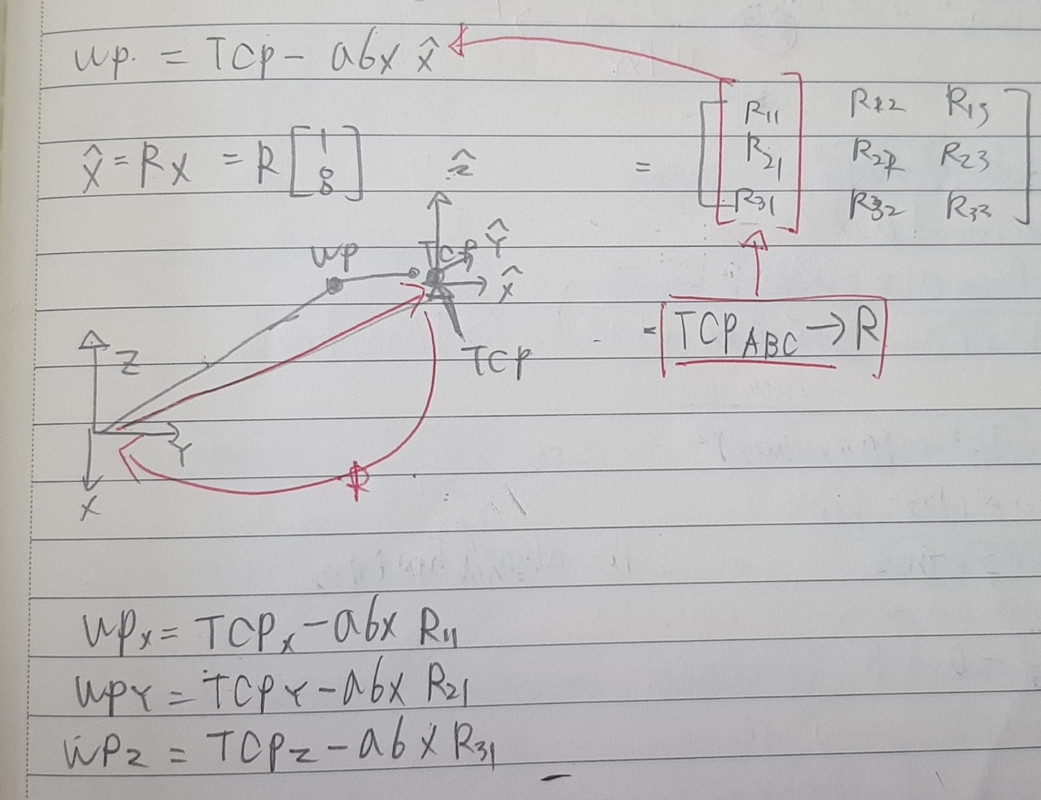 WP = TCP - a6x x̂
x̂ = Rx = R [1 0 0]
= [R11 R12 R13
R21 R22 R23
R31 R32 R33]
ẑ
WP TCP ŷ
x̂
= [TCP_ABC → R]
Z
TCP
Y
R
X
WPx = TCPx - a6x R11
WPY = TCPY - a6x R21
WPz = TCPz - a6x R31